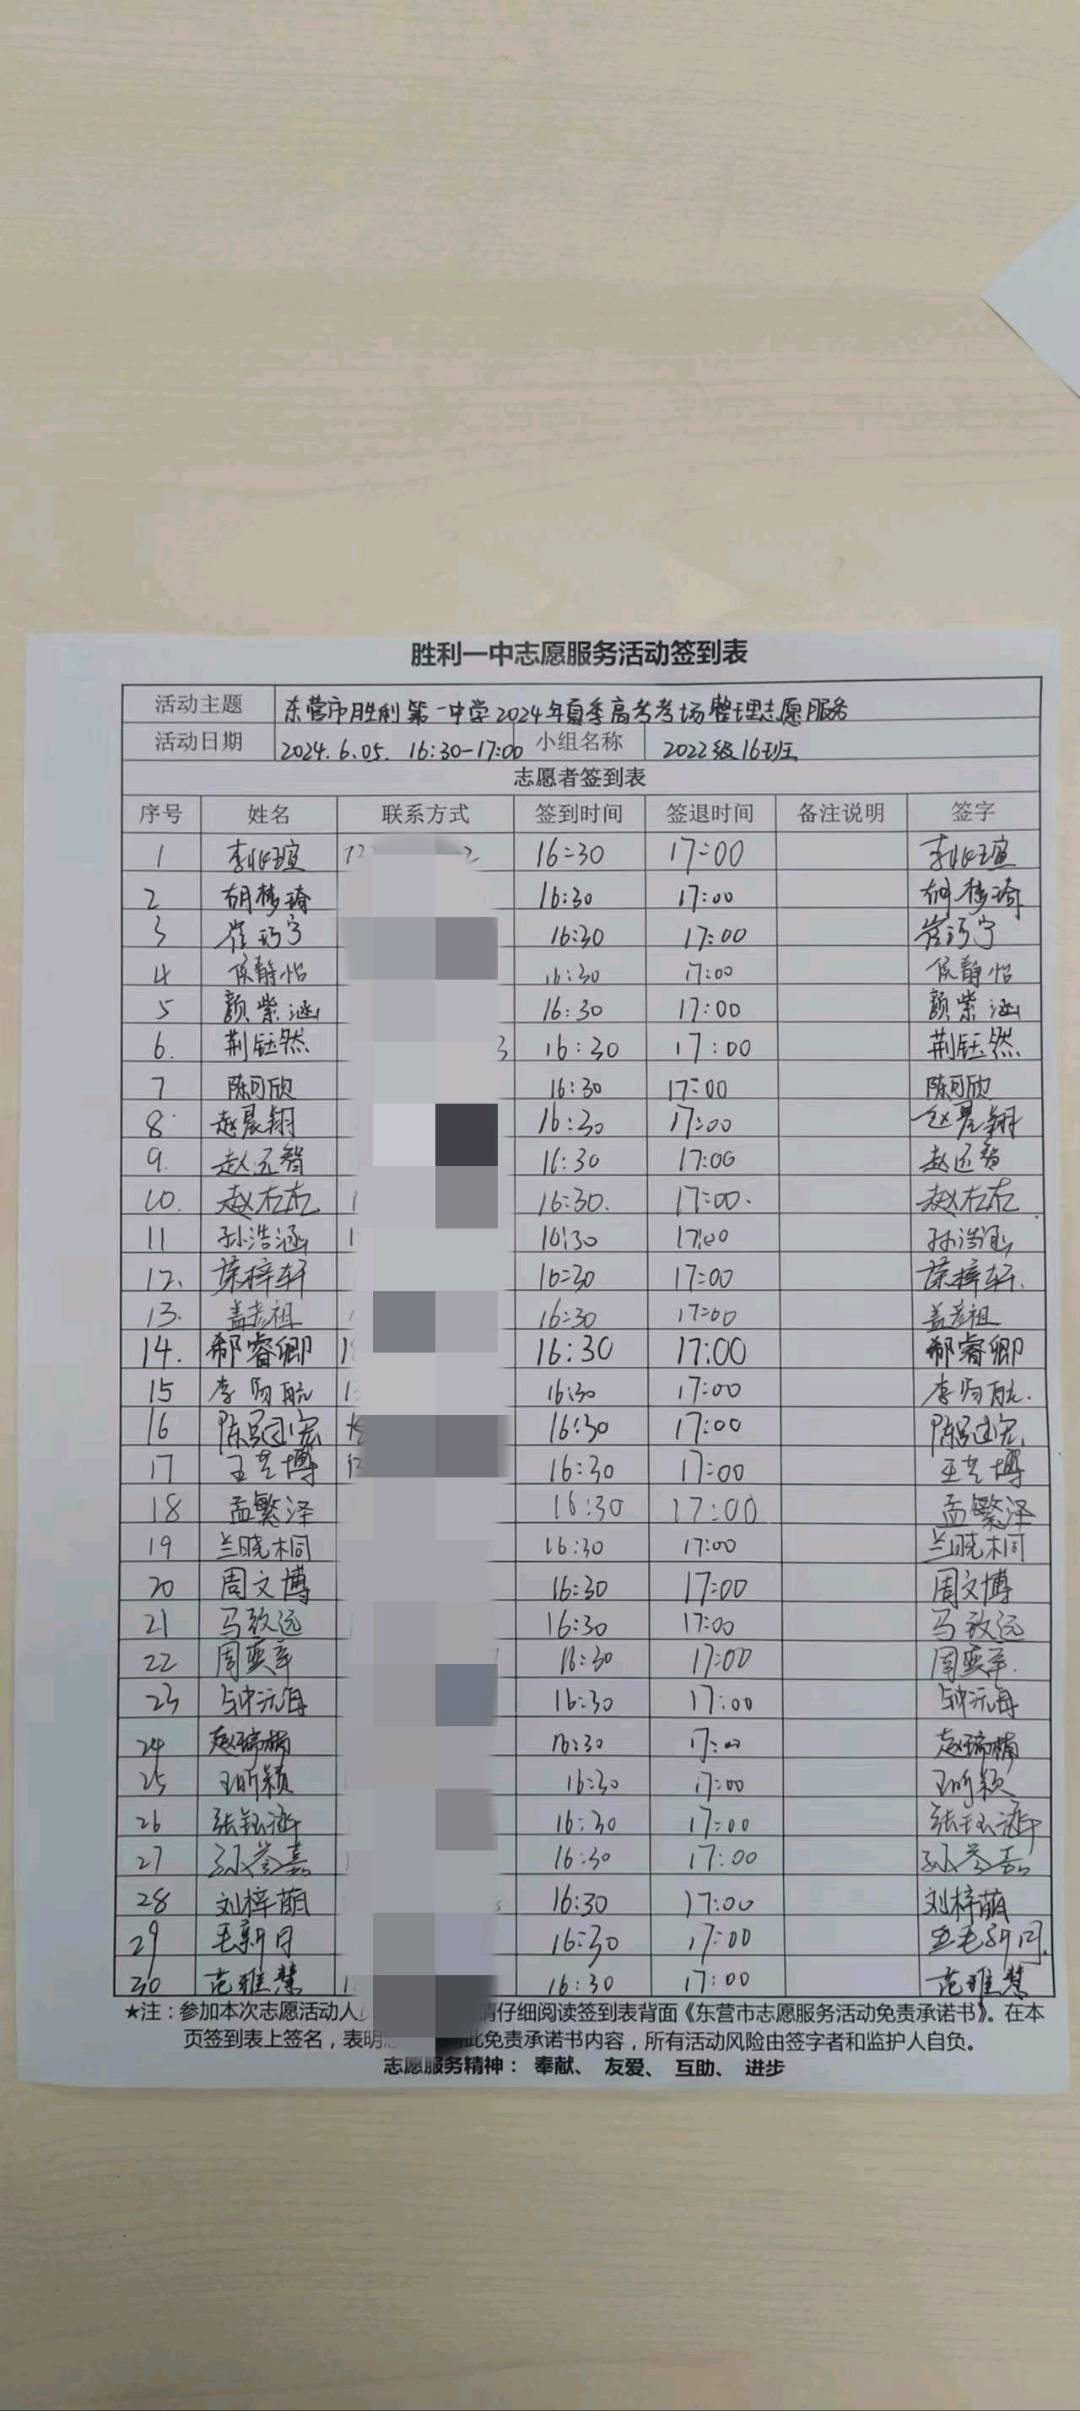 胜利一中志愿服务活动签到表
活动主题 东营市胜利第一中学2024年夏季高考考场整理志愿服务
活动日期 2024.6.05. 16:30-17:00 小组名称 2022级16班
志愿者签到表
序号 姓名 联系方式 签到时间 签退时间 备注说明 签字
1 16:30 17:00
2 胡梦琦 16:30 17:00 胡梦琦
3 16:30 17:00
4 侯静怡 16:30 17:00 侯静怡
5 颜紫涵 16:30 17:00 颜紫涵
6. 荆钰然 16:30 17:00 荆钰然
7 陈可欣 16:30 17:00 陈可欣
8 赵晨翔 16:30 17:00 赵晨翔
9. 16:30 17:00
10. 16:30. 17:00.
11 孙浩涵 16:30 17:00 孙浩涵
12. 梓轩 16:30 17:00 梓轩.
13. 盖彦祖 16:30 17:00 盖彦祖
14. 郗睿卿 16:30 17:00 郗睿卿
15 16:30 17:00
16 陈冠宏 16:30 17:00 陈冠宏
17 王艺博 16:30 17:00 王艺博
18 孟繁泽 16:30 17:00 孟繁泽
19 兰晓桐 16:30 17:00 兰晓桐
20 周文博 16:30 17:00 周文博
21 马致远 16:30 17:00 马致远
22 周奕辛 16:30 17:00 周奕辛.
23 钟沅每 16:30 17:00 钟沅每
24 赵瑞楠 16:30 17:00 赵瑞楠
25 王昕颖 16:30 17:00 王昕颖
26 张钰 16:30 17:00 张钰
27 孙誉嘉 16:30 17:00 孙誉嘉
28 刘梓萌 16:30 17:00 刘梓萌
29 毛新月 16:30 17:00 毛新月
30 范雅慧 16:30 17:00 范雅慧
★注：参加本次志愿活动人 请仔细阅读签到表背面《东营市志愿服务活动免责承诺书》。在本
页签到表上签名，表明 此免责承诺书内容，所有活动风险由签字者和监护人自负。
志愿服务精神： 奉献、 友爱、 互助、 进步